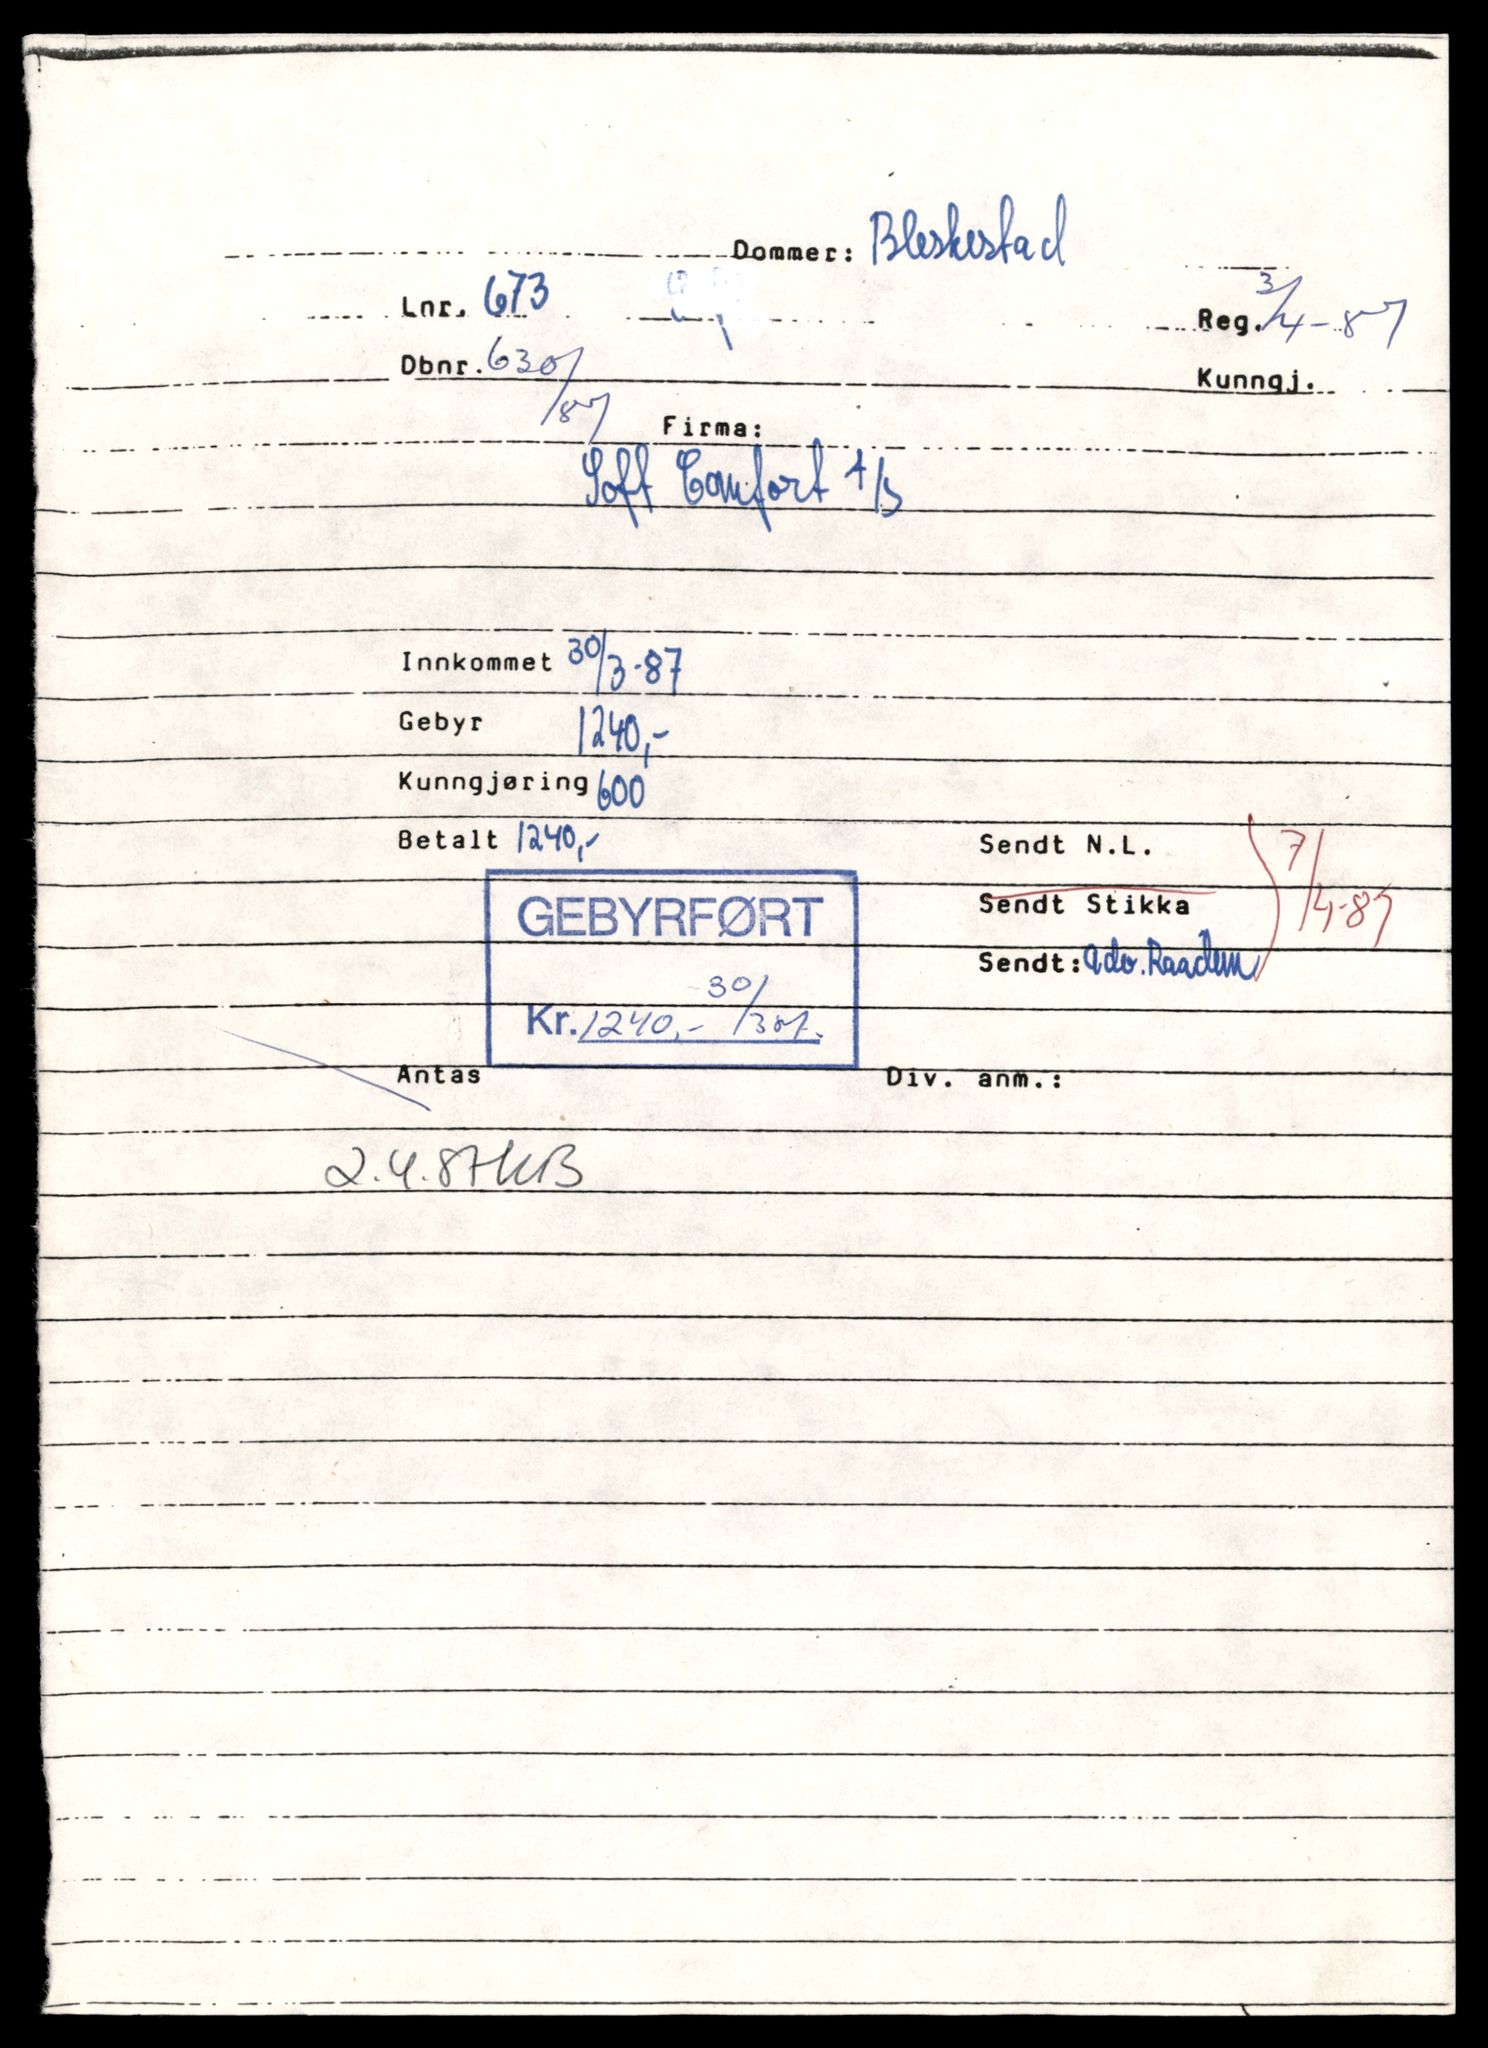 Dommer: Bleskestad
Lnr. 673 Reg. 3/4-87
Dbnr. 630/87 Kunngj.
Firma:
Soft Comfort A/S
Innkommet 30/3-87
Gebyr 1240,-
Kunngjøring 600
Betalt 1240,- Sendt N.L. 7/4-87
Sendt Stikka
GEBYRFØRT
Sendt: adv. Raadim
Kr. 1240,- 30/3 87.
Antas Div. anm.:
2.4.87 KB